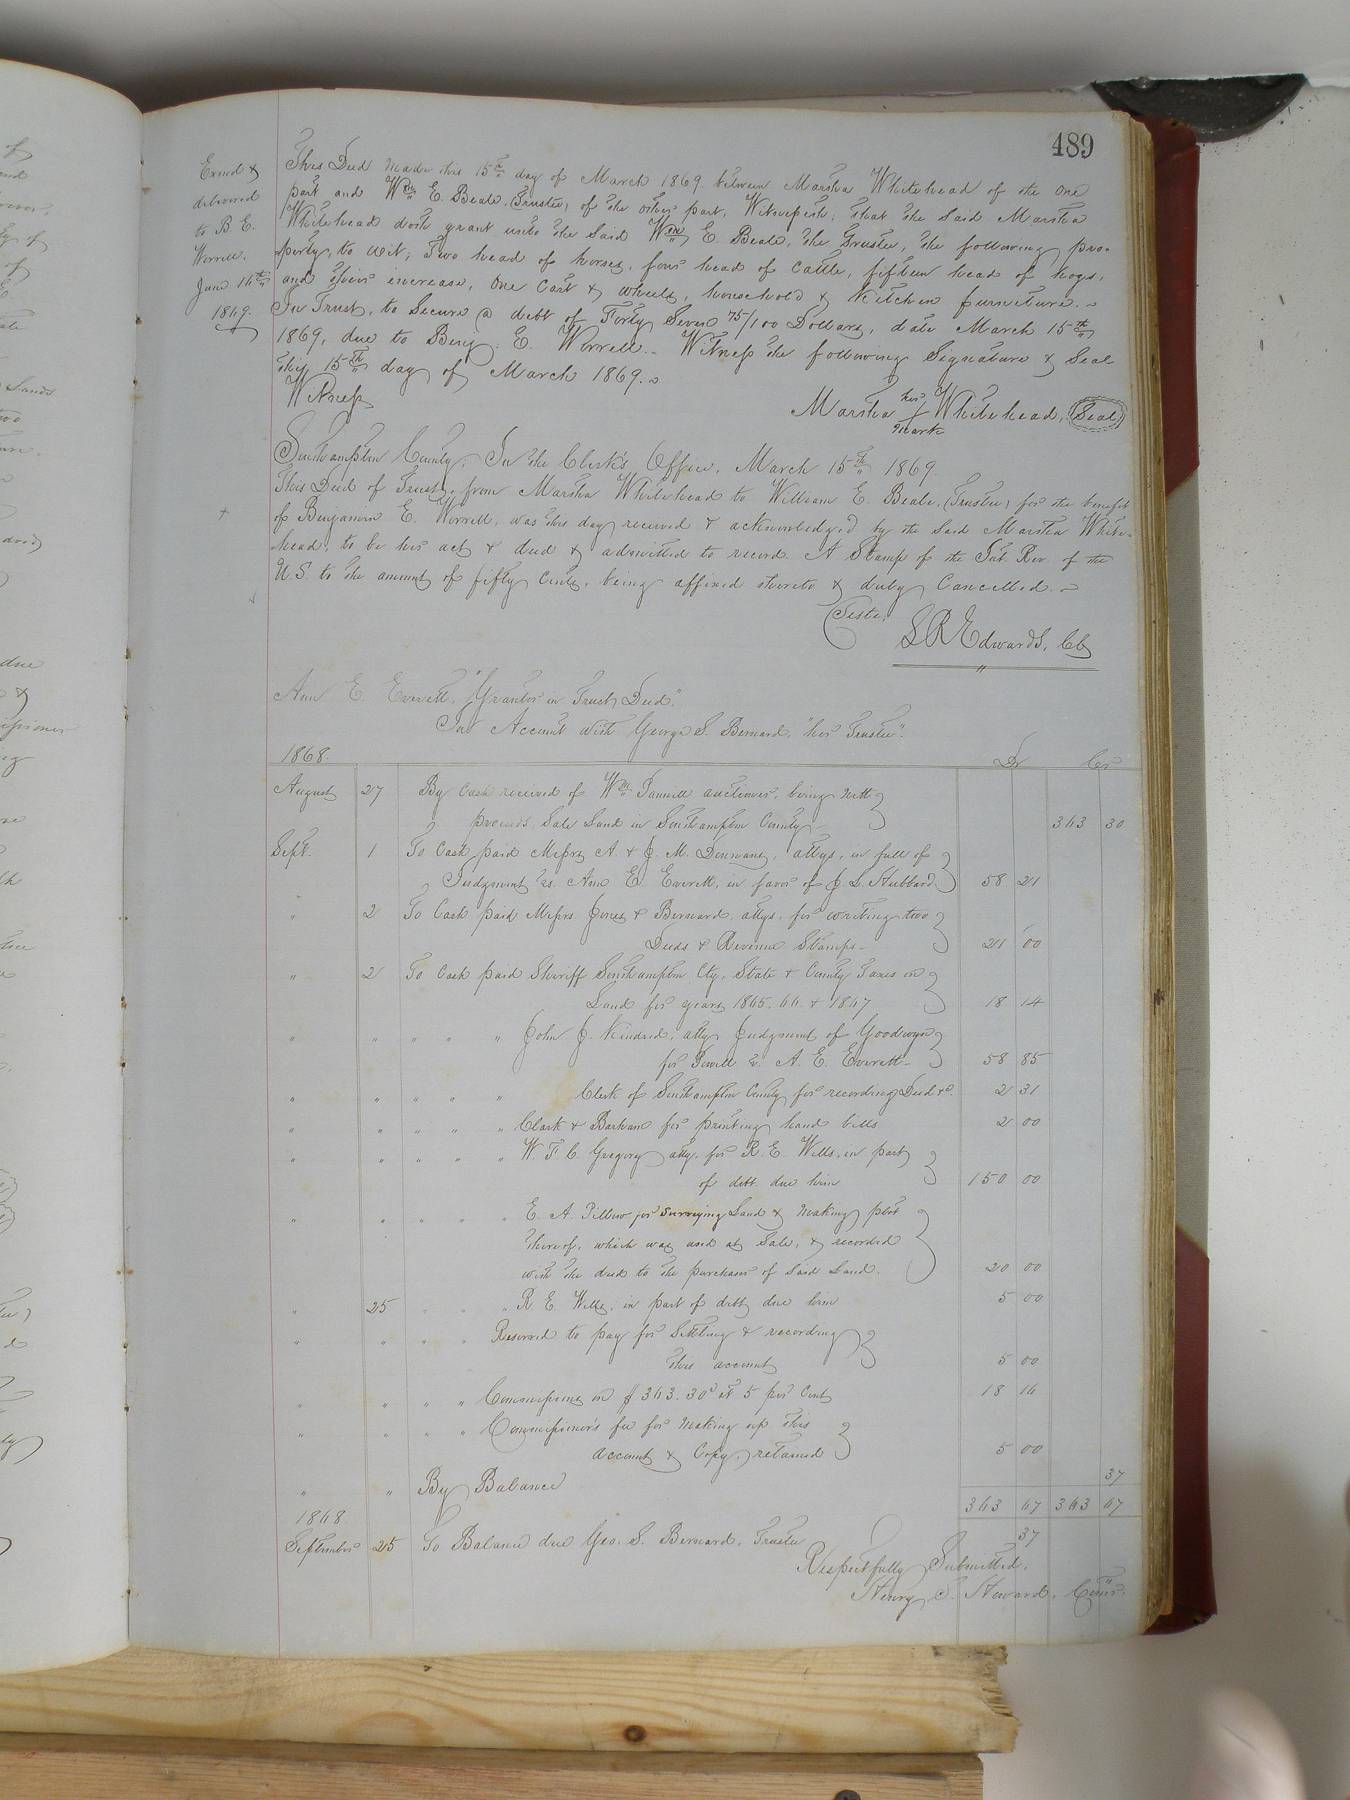 489
Exmd &
delivered
to B. E.
Worrell.
June 14th
1869.
This Deed made this 15th day of March 1869. between Marsha Whitehead of the one
part and Wm E. Beale, (Trustee) of the other part, Witnesseth; that the said Marsha
Whitehead doth grant unto the said Wm E. Beale, the Trustee, the following pro-
perty, to wit; Two head of horses, four head of cattle, fifteen head of hogs,
and their increase, One Cart & wheels, household & Kitchen furniture.
In Trust, to Secure a debt of Forty Seven 75/100 Dollars, date March 15th
1869, due to Benj. E. Worrell. Witness the following Signature & Seal
this 15th day of March 1869.
Witness
Marsha his Whitehead, (Seal)
mark
Southampton County, In the Clerk's Office, March 15th 1869.
This Deed of Trust, from Marsha Whitehead to William E. Beale, (Trustee) for the benefit
of Benjamin E. Worrell, was this day received & acknowledged by the said Marsha White-
head, to be his act & deed & admitted to record. A Stamp of the Int. Rev. of the
U.S. to the amount of fifty Cents, being affixed thereto & duly Cancelled.
Teste,
L R Edwards, Clk
Ann E. Everett, "Grantor in Trust Deed."
In Account with George S. Bernard, "her Trustee".
1868. Dr Cr
August 27 By Cash received of Wm Pannill auctioneer, being nett
proceeds Sale Land in Southampton County 363 30
Sept. 1 To Cash paid Messrs A. & J. M. Donnans, attys, in full of
Judgment vs. Ann E. Everett, in favor of J. L. Hubbard 58 21
" 2 To Cash paid Messrs Jones & Bernard, attys, for writing two
Deeds & Revenue Stamps 21 00
" 2 To Cash paid Sheriff Southampton Cty, State & County Taxes on
Land for years 1865. 66. & 1867 18 14
" " " " " John J. Kindred, atty Judgment of Goodwyn
for Powell vs. A. E. Everett 58 85
" " " " " Clerk of Southampton County for recording Deed &c. 2 31
" " " " " Clark & Barham for printing hand bills 2 00
" " " " " W. T. C. Gregory atty. for R. E. Wills, in part
of debt due him 150 00
" " " " " E. A. Pillow for Surveying Land & making plot
thereof, which was used at Sale, & recorded
with the deed to the purchaser of said Land. 20 00
" 25 " " " R. E. Wills, in part of debt due him 5 00
" " " " Reserved to pay for Settling & recording
this account 5 00
" " " " Commissions on $363.30 at 5 per Cent 18 16
" " " " Commissioner's fee for making up this
account & Copy, retained 5 00
" " By Balance 37
363 67 363 67
1868
September 25 To Balance due Geo. S. Bernard, Trustee 37
Respectfully Submitted.
Henry S. Howard, Comr.